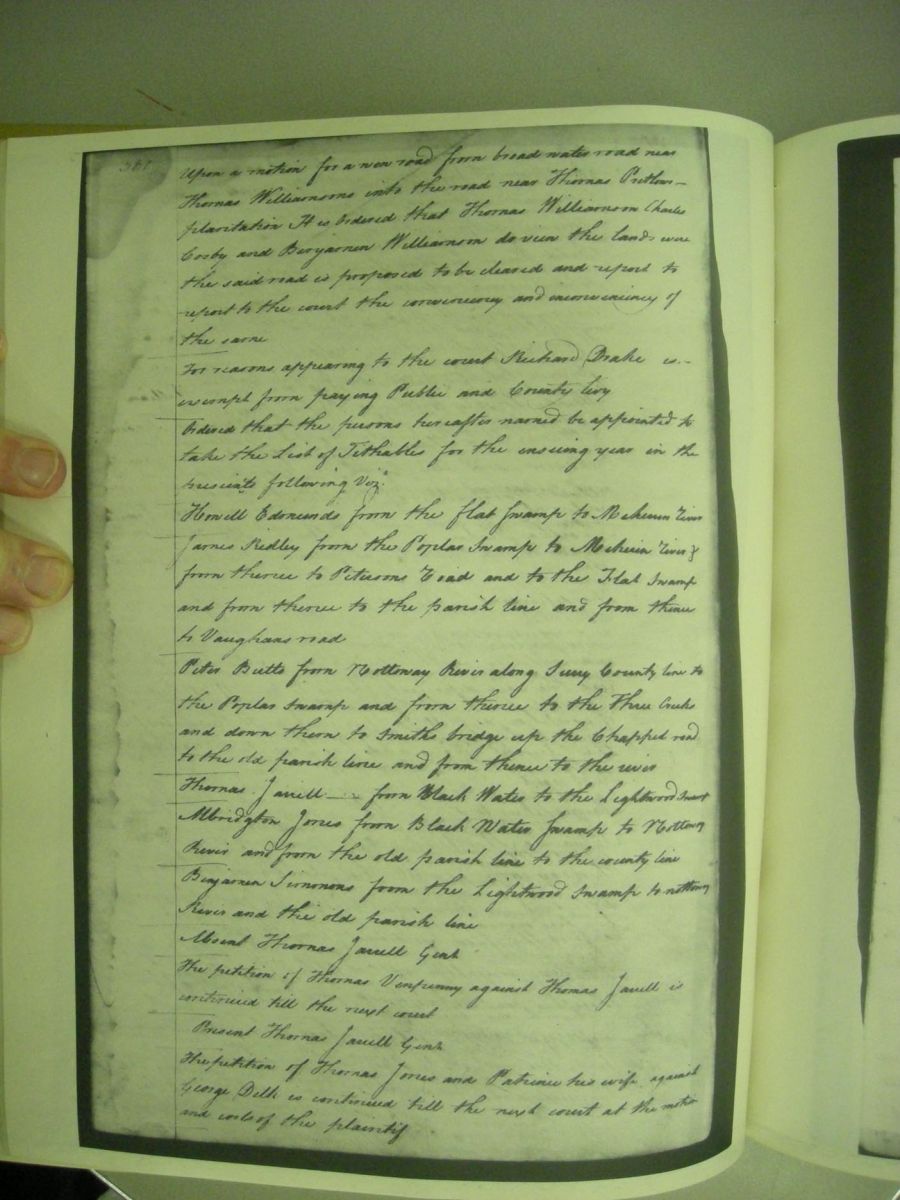 Upon a motion for a new road from broad water road near
Thomas Williamsons into the road near Thomas Pretlows
plantation It is Ordered that Thomas Williamson Charles
Cosby and Benjamen Williamson do view the lands were
the said road is proposed to be cleared and report to
report to the court the conveniency and inconveniency of
the same
For reasons appearing to the court Richard Drake is
exempt from paying Public and County levy
Ordered that the persons hereafter named be appointed to
take the List of Tithables for the ensuing year in the
presincts following Viz.
Howell Edmunds from the flat Swamp to Meherin River
James Ridley from the Poplar Swamp to Meherin River &
from thence to Petersons Road and to the Flat Swamp
and from thence to the parish line and from thence
to Vaughans road
Peter Butts from Nottoway River along Surry County line to
the Poplar Swamp and from thence to the Three Creeks
and down them to Smiths bridge up the Chapped road
to the old parish line and from thence to the river
Thomas Jarrell from Black Water to the Lightwood Swamp
Albridgton Jones from Black Water Swamp to Nottoway
River and from the old parish line to the county line
Benjamen Simmons from the Lightwood Swamp to nottoway
River and the old parish line
Absent Thomas Jarrell Gent
The petition of Thomas Vinpenny against Thomas Jarell is
continued till the next court
Present Thomas Jarell Gent
The petition of Thomas Jones and Patience his wife against
George Delk is continued till the next court at the motion
and costs of the plaintif